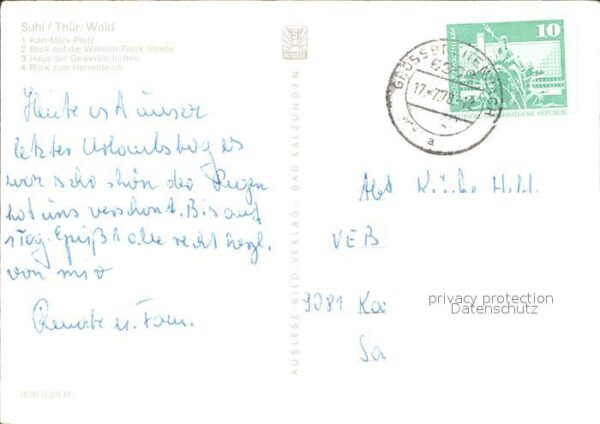 Suhl / Thür. Wald
1 Karl-Marx-Platz
2 Blick auf die Wilhelm-Pieck-Straße
3 Haus der Gewerkschaften
4 Blick zum Herrenteich
Heute ist unser
letzter Urlaubstag es
war sehr schön der Regen
hat uns verschont. Bis auf
1 Tag. Grüßt alle recht herzl.
von mir
Renate u. Fam.
DDR 0,20 M
AUSLESE-BILD-VERLAG · BAD SALZUNGEN
10
17.-7.79
a
DEMOKRATISCHE REPUBLIK
Abt.
VEB
9081 Ka
Sa
privacy protection
Datenschutz